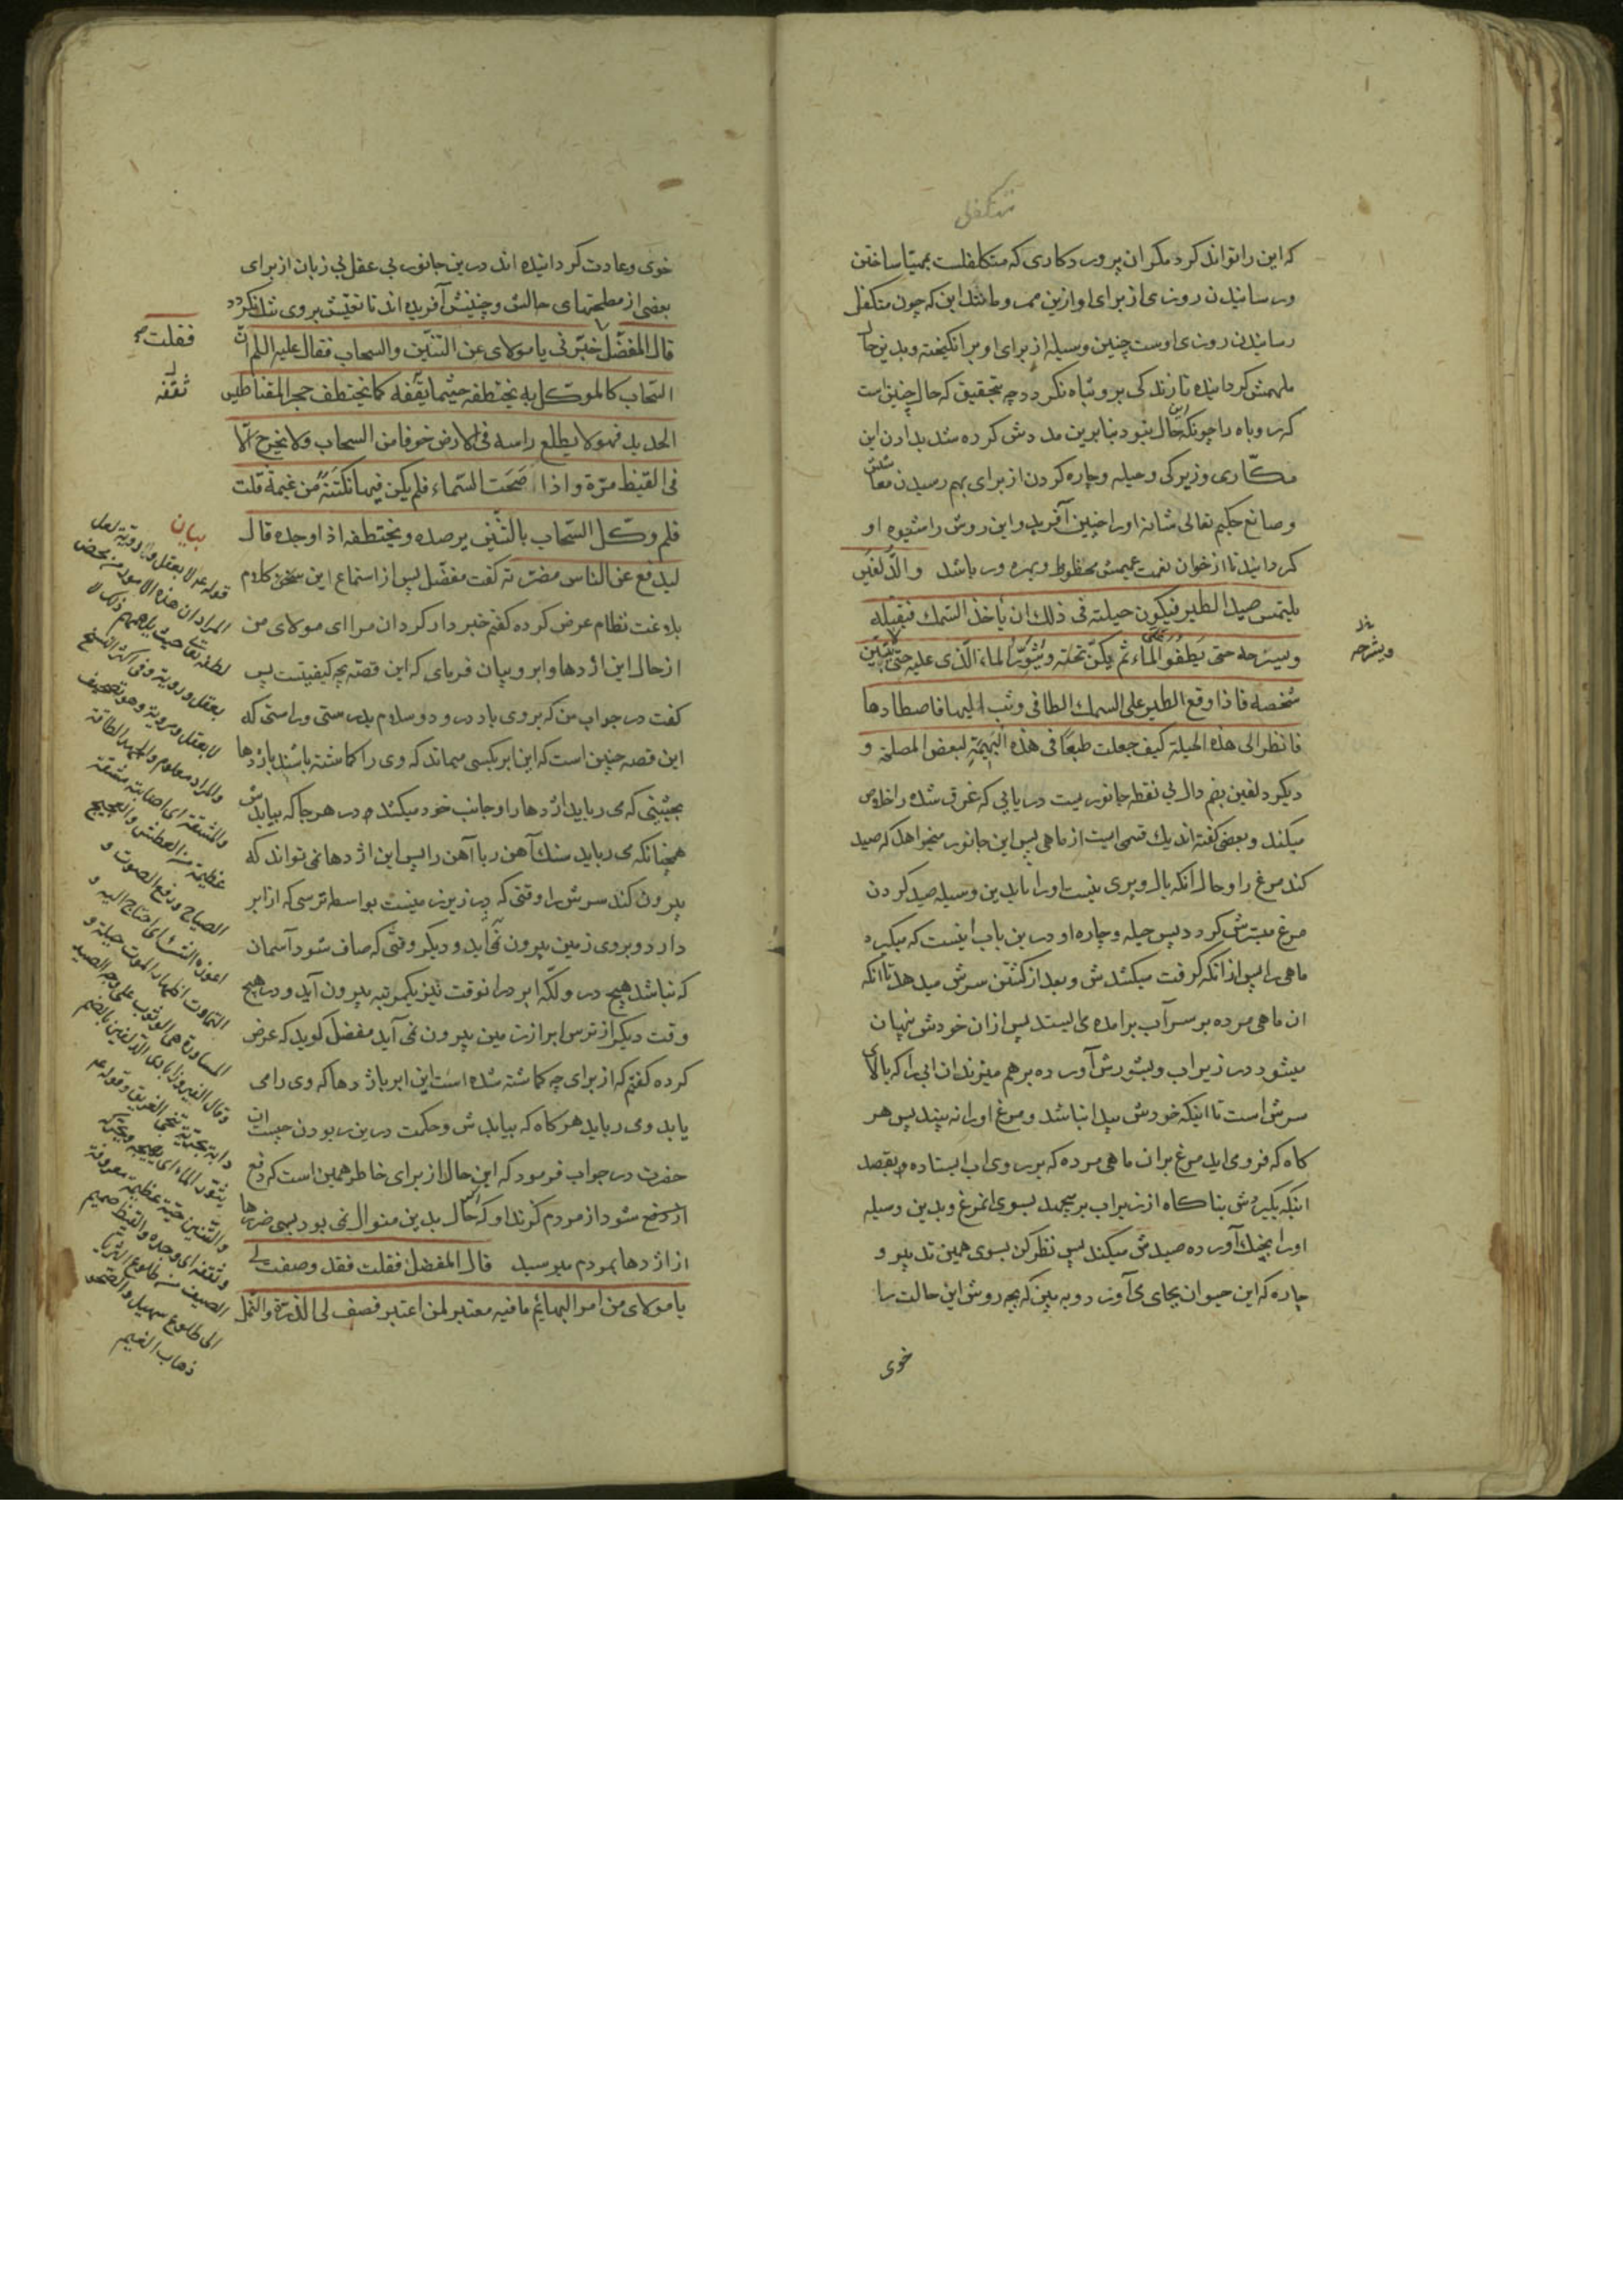 متکفلی
که این را تواند کرد مکر ان پروردکاری که متکفلست بمهیا ساختن
ورسانیدن روزی از برای او ازین ممر و مانند این که چون متکفل
رسانیدن روزی اوست چنین وسیله از برای او برانکیخته و بدین حال
ملهمش کردانیده تا زندکی برو تباه نکردد چه بتحقیق که حال چنین است
که روباه را چونکه این حال نبود بنابرین مددش کرده شد بدادن این
مکّاری وزیرکی وحیله وچاره کردن از برای بهم رسیدن معاشش
وصانع حکیم تعالی شانه اورا چنین آفرید واین روش را شیوه او
کردانید تا از خوان نعمت عمیمش محظوظ وبهره ور باشد والدّلفین
یلتمس صید الطیر فیکون حیلته فی ذلك ان یأخذ السّمك فیقتله
ویسرحه حتی یطفو الماء ثم یکن تحته ویثوّر الماء الّذی علیه حتی یتبیّن
شخصه فاذا وقع الطیر علی السمك الطافی وثب الیها فاصطادها
فانظر الی هذه الحیلة کیف جعلت طبعًا فی هذه البهیمة لبعض المصلحة و
دیکر دلفین بضم دال بی نقطه جانوریست دریایی که غرق شده را خلاص
میکند وبعضی کفته اند یك قسمی است از ماهی پس این جانور میخواهد که صید
کند مرغ را وحال آنکه بال وپری نیست اورا باید بدین وسیله صید کردن
مرغ میسّرش کردد پس حیله وچاره او درین باب اینست که میکیرد
ماهی را پس از انکه کرفت میکشدش وبعد از کشتن سرش میدهد تا انکه
ان ماهی مرده بر سر آب برامده می ایستد پس ازان خودش پنهان
میشود در زیر اب وبشورش آورده برهم میزند ان ابی را که بالای
سرش است تا اینکه خودش پیدا نباشد ومرغ اورا نه بیند پس هر
کاه که فرومی اید مرغ بران ماهی مرده که بر روی اب ایستاده وبقصد
اینکه بکیردش بناکاه از زیر اب برمیجهد بسوی انمرغ وبدین وسیله
اورا بچنك آورده صیدش میکند پس نظر کن بسوی همین تدبیر و
چاره که این حیوان بجای می آورد وبه بین که بچه روش این حالت را
خوی
ویشرحه
خوی وعادت کردانیده اند درین جانور بی عقل بی زبان از برای
بعضی از مصلحتهای حالش وچنینش آفریده اند تا تعیّش بروی تنك نکردد
قال المفضّل خبّرنی یا مولای عن التنّین والسحاب فقال علیه السلم انّ
السّحاب کالموکّل به یختطفه حیثما ثقفه کما یختطف حجر المقناطیس
الحدید فهو لا یطلع راسه فی الارض خوفا من السحاب ولا یخرج الّا
فی القیظ مرّة واذا صحت السّماء فلم یکن فیها نکتة من غیمة قلت
فلم وکّل السّحاب بالتّنین یرصده ویختطفه اذا وجده قال
لیدفع عن الناس مضرّته کفت مفضّل پس از استماع این سخن کلام
بلاغت نظام عرض کرده کفتم خبردار کردان مرا ای مولای من
از حال این اژدها وابر وبیان فرمای که این قصّه بچه کیفیتست پس
کفت در جواب من که بر وی باد درود وسلام بدرستی وراستی که
این قصه چنین است که این ابر بکسی میماند که وی را کماشته باشند باژدها
بحیثیتی که می رباید اژدها را وجانب خود میکشد در هرجا که بیابدش
همچنانکه می رباید سنك آهن ربا آهن را پس این اژدها نمی تواند که
بیرون کند سرش را وقتی که در زیر زمینست بواسطه ترسی که از ابر
دارد وبروی زمین بیرون نمی آید ودیکر وقتی که صاف شود آسمان
که نباشد هیچ در و لکّه ابر درانوقت نیز یکمرتبه بیرون آید ودر هیچ
وقت دیکر از ترس ابر از زمین بیرون نمی آید مفضل کوید که عرض
کرده کفتم که از برای چه کماشته شده است این ابر باژدها که وی را می
یابد ومی رباید هرکاه که بیابدش وحکمت درین ربودن چیست ان
حضرت در جواب فرمود که این حال از برای خاطر همین است که دفع
ازو دفع شود از مردم کزند او که اکر حال بدین منوال نمی بود بسی ضررها
از اژدها بمردم میرسید قال المفضل فقلت فقد وصفت لی
یا مولای من امر البهائم ما فیه معتبر لمن اعتبر فصف لی الذرّة والنّمل
فقلت
ثقفه
بیان
قوله ع لا بعقل ورویّة لعل
المراد ان هذه الامور من محض
لطفه تعالی حیث یلهمهم ذلک لا
بعقل ورویّة وفی اکثر النسخ
لا یعقل ومرویة وهو تصحیف
والمراد معلوم والجهد الطاقة
والمشقة ای اصابته مشقة
عظیمة من العطش والعجیج
الصیاح ورفع الصوت و
اعوزه الشئ ای احتاج الیه و
التماوت اظهار الموت حیلة و
المساورة هی الوثوب علی وجه الصید
وقال الفیروزابادی الدّلفین بالضم
دابة بحریّة تنجی الغریق وقوله ع
یثوّر الماء ای یهیجه ویحرّکه
والتّنین حیّة عظیمة معروفة
وثقفه ای وجده والقیظ صمیم
الصیف من طلوع الثریّا
الی طلوع سهیل والصّحو
ذهاب الغیم